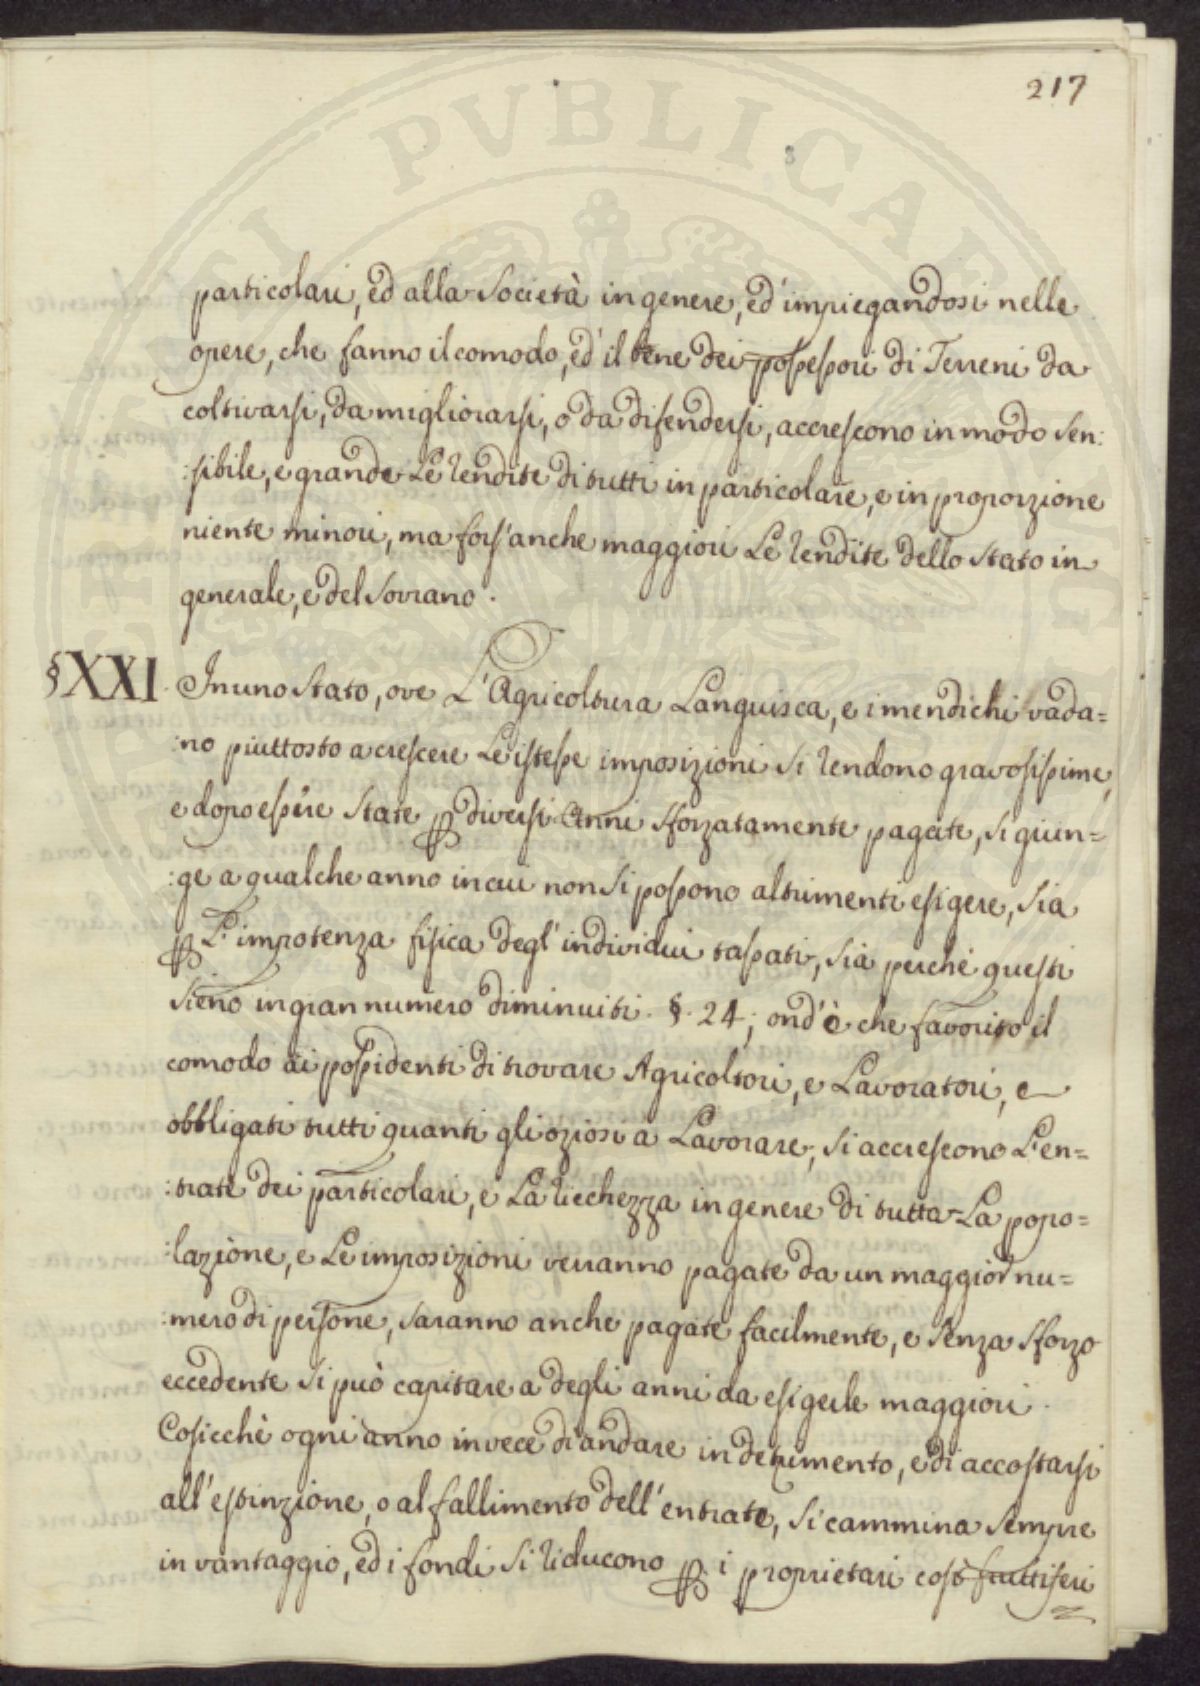 217
PVBLICAE
particolari, ed alla Società in genere, ed impiegandosi nelle
opere, che fanno il comodo, ed il bene dei possessori di Terreni da
coltivarsi, da migliorarsi, o da difendersi, accrescono in modo sen:
:sibile, e grande Le rendite di tutti in particolare, e in proporzione
niente minori, ma fors'anche maggiori Le rendite dello Stato in
generale, e del Sovrano.
§XXI. In uno Stato, ove L'Agricoltura Languisca, e i mendichi vada=
:no piuttosto a crescere Le istesse imposizioni si rendono gravosissime,
e dopo essere state p diversi Anni sforzatamente pagate, si giun=
:ge a qualche anno in cui non si possono altrimenti esigere, sia
p L'impotenza fisica degl'individui tassati, sia perchè questi
sieno in gran numero diminuiti. §. 24; ond'è che favorito il
comodo ai possidenti di trovare Agricoltori, e Lavoratori, e
obbligati tutti quanti gli oziosi a Lavorare, si accrescono L'en=
:trate dei particolari, e La ricchezza in genere di tutta La popo=
:lazione, e Le imposizioni verranno pagate da un maggior nu=
:mero di persone, saranno anche pagate facilmente, e senza sforzo
eccedente si può capitare a degli anni da esigerle maggiori.
Cosicchè ogni anno invece di andare in detrimento, e di accostarsi
all'estinzione, o al fallimento dell'entrate, si cammina sempre
in vantaggio, ed i fondi si riducono p i proprietari così fruttiferi